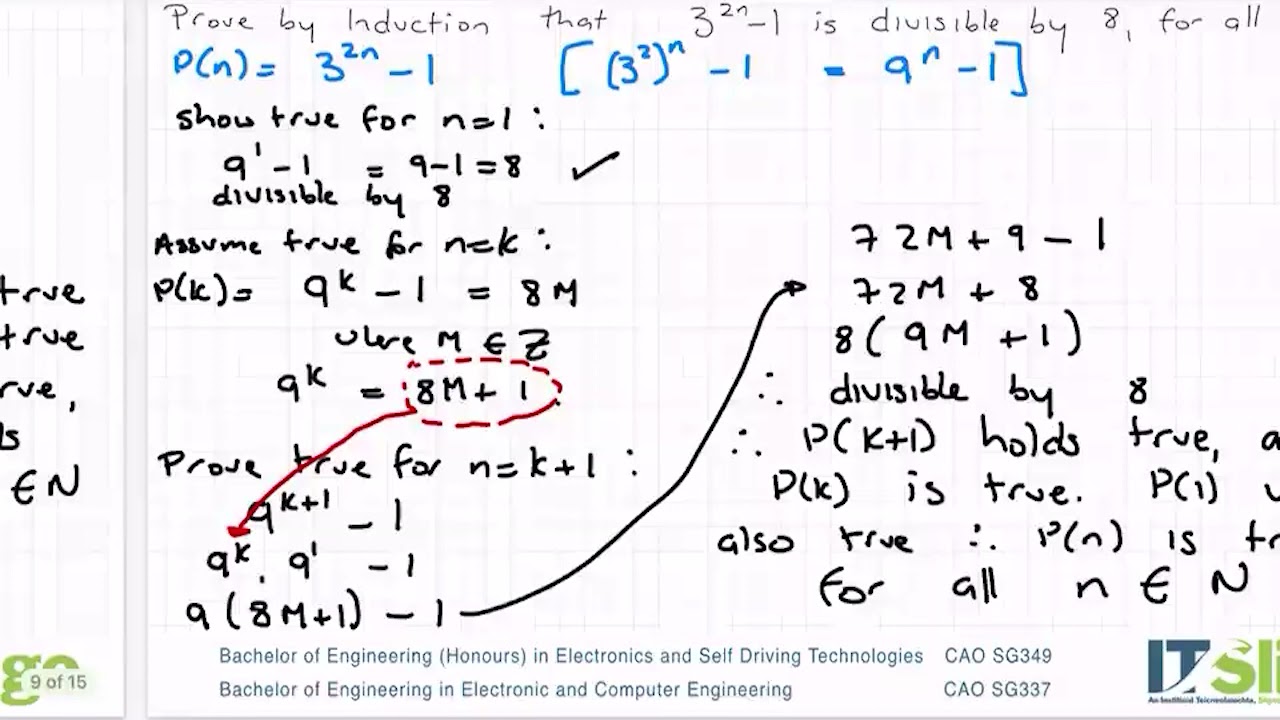 Prove by Induction that 3²ⁿ-1 is divisible by 8, for all
P(n) = 3²ⁿ - 1 [(3²)ⁿ - 1 = 9ⁿ - 1]
show true for n=1 :
9¹ - 1 = 9-1 = 8 ✓
divisible by 8
Assume true for n=k :
P(k) = 9ᵏ - 1 = 8M
where M ∈ Z
9ᵏ = 8M + 1
Prove true for n = k+1 :
9ᵏ⁺¹ - 1
9ᵏ. 9¹ - 1
9(8M+1) - 1
72M + 9 - 1
72M + 8
8(9M + 1)
∴ divisible by 8
∴ P(k+1) holds true,
P(k) is true. P(1)
also true ∴ P(n) is
for all n ∈ N
true
true
∈ N
Bachelor of Engineering (Honours) in Electronics and Self Driving Technologies CAO SG349
Bachelor of Engineering in Electronic and Computer Engineering CAO SG337
go
9 of 15
IT Sli